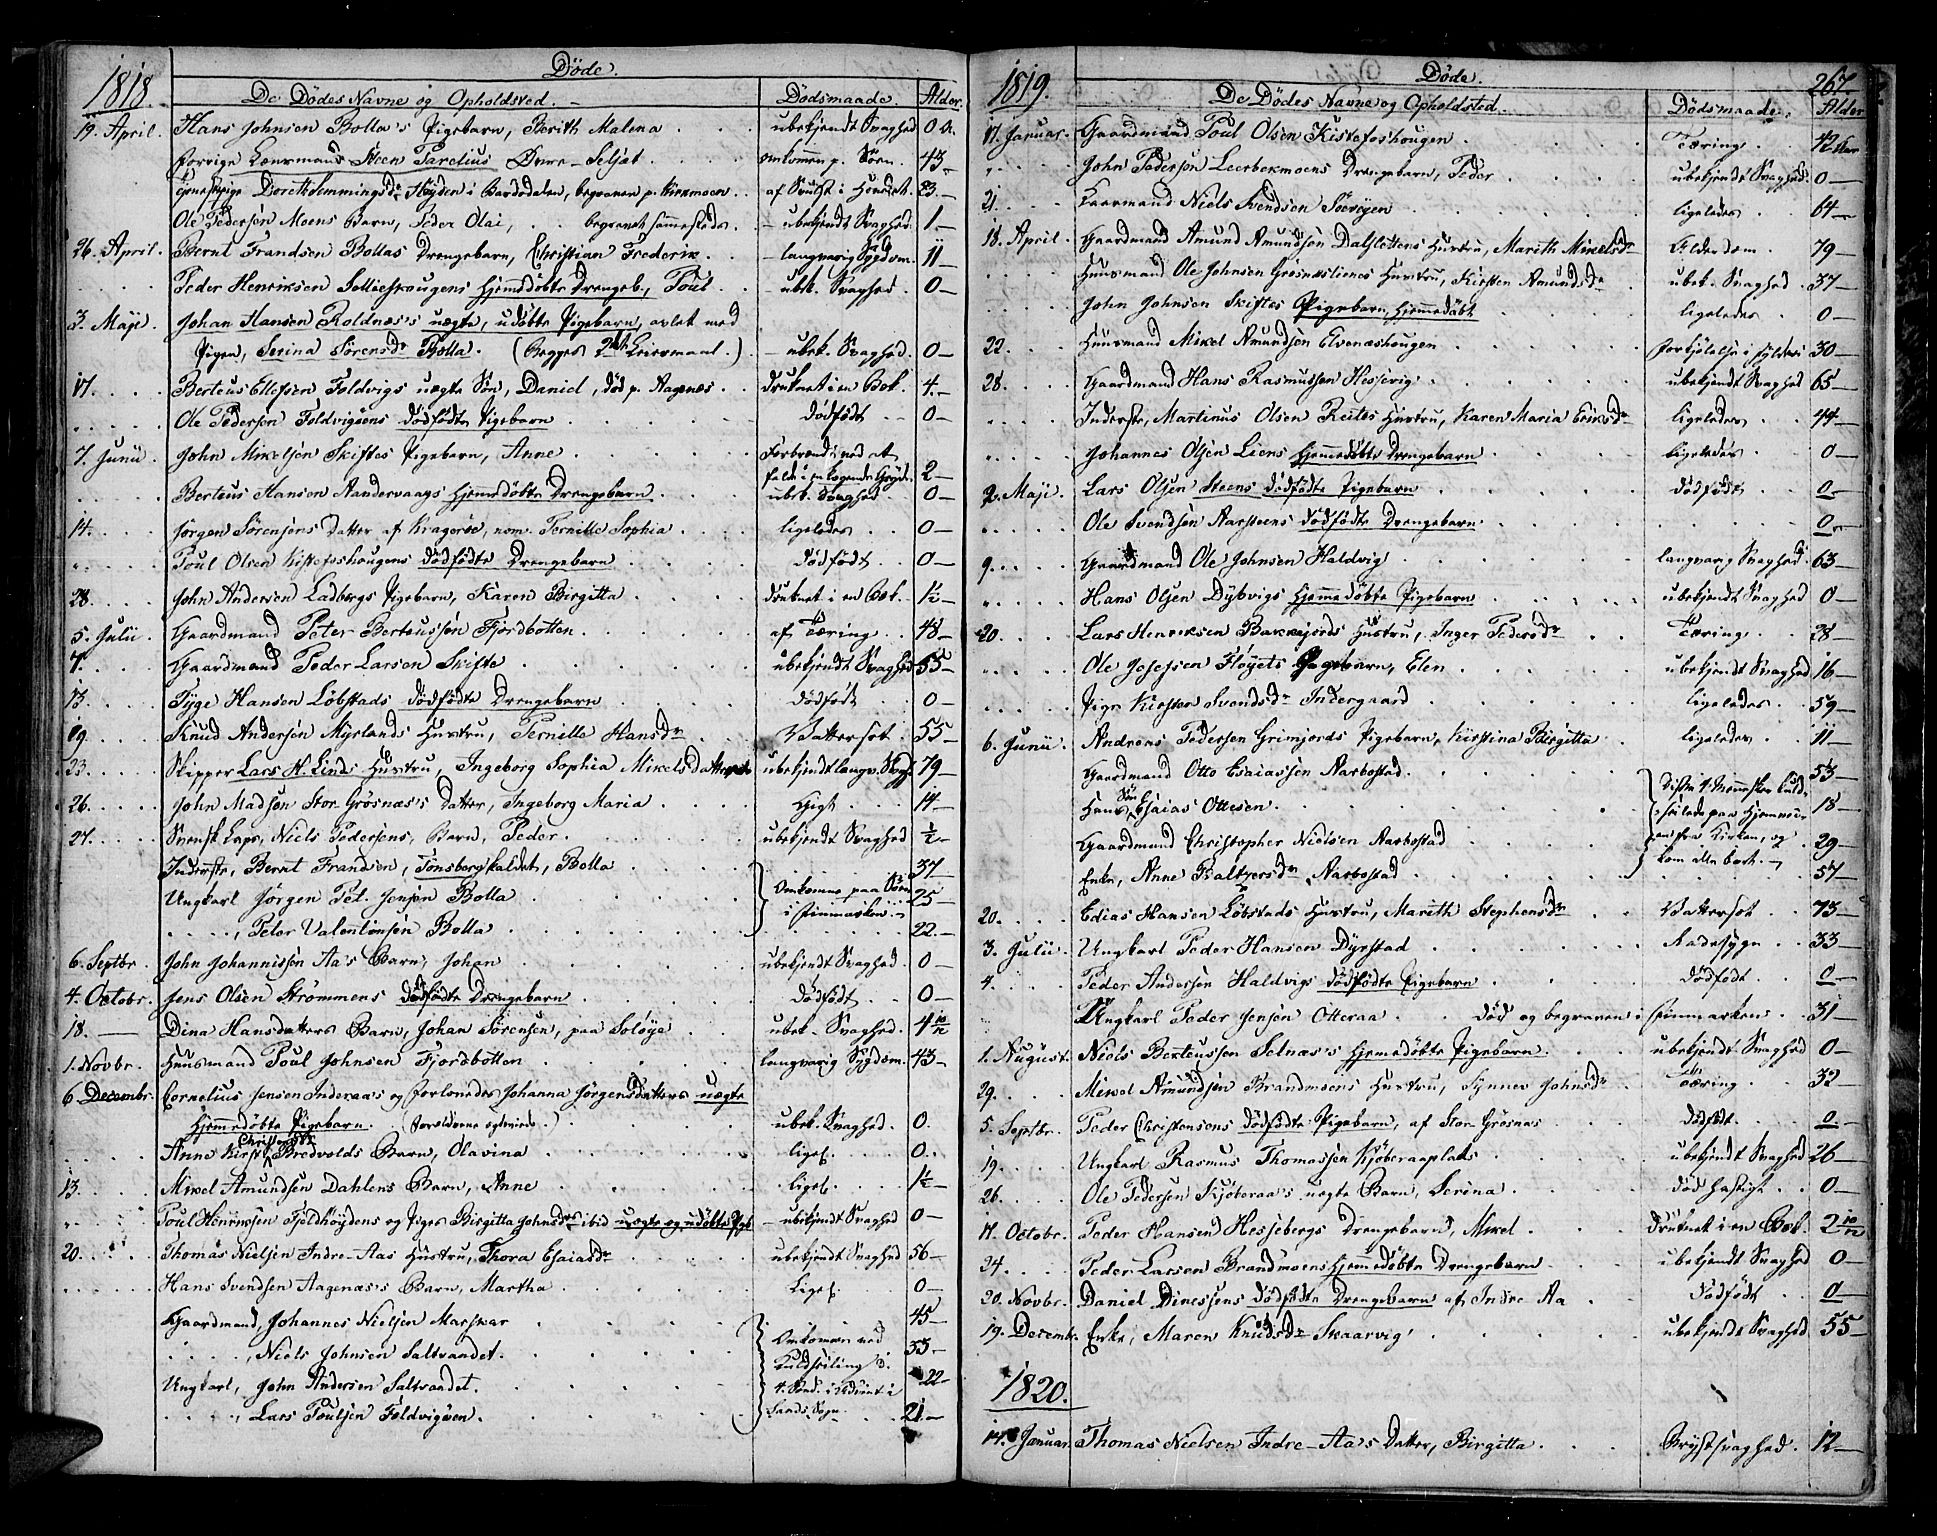 1818.
Døde.
De Dødes Navne og Opholdsted.
Dødsmaade.
Alder.
19. April. Hans Johnsen Bolla's Pigebarn, Berith Malena ubekjendt Svaghed 0 A.
forrige Lænsmand Steen Parelius Seljæt omkommen p. Søen. 43.
Dorethe Hemmingsdr Høyden i Bardodalen, begraven p. Kirkemoen 23.
Ole Pedersen Moens Barn, Peder Olai, begravet sammesteds. ubekjendt Svaghed. 1
26. April. Bernt Frandsen Bollas Drengebarn, Christian Frederik langvarig Sygdom. 11
Peder Henriksen Sollieskougens hjemmedøbte Drengeb., Poul ubek. Svaghed. 0
3. Maji. Johan Hansen Roldnæs's uægte, udøbte Pigebarn, avlet med
Pigen, Serina Sørensdr Bolla. (Begges 2det Leiermaal.) ubek. Svaghed. 0
17. Berteus Ellefsen Foldvigs uægte Søn, Daniel, død p. Aagenæs druknet i en Bæk. 4.
Ole Pedersen Foldvigøens dødfødte Pigebarn dødfødt 0
7. Junii. John Mikelsen Skiftes Pigebarn, Anne Forbrændt ved at
falde i en kogende Gryde. 2
Berteus Hansen Sandervaags hjemmedøbte Drengebarn. ubek. Svaghed 0
14. Jørgen Sørensens Datter af Kragerøe, nom. Pernille Sophia ligeledes 0
Poul Olsen Kistefoshougens dødfødte Drengebarn dødfødt 0
28. John Andersen Ladbergs Pigebarn, Karen Birgitta druknet i en Bæk. 1½
5. Julii. Gaardmand Peter Berteussen Fjordbotten. af Tæring. 48
7. Gaardmand Peder Larsen Skifte ubekjendt Svaghed 55
13. Tyge Hansen Løbstads dødfødte Drengebarn dødfødt 0
19. Knud Andersen Myrlands Hustru, Pernille Hansdr Vattersot. 55
23. Skipper Lars H. Linds Hustru, Ingeborg Sophia Mikelsdatter ubekjendt langv. Svagh. 79
26. John Madsen Stor Grøsnæs's Datter, Ingeborg Maria Gigt 14
27. Svensk Lap, Niels Pedersens, Barn, Peder. ubekjendt Svaghed ½
Inderste, Bernt Frandsen, Tønsberg kaldet, Bolla 37
Ungkarl Jørgen Pet. Jensen Bolla Omkomne paa Søen 25
, Peter Valentinsen Bolla i Finmarken 22.
6. Septbr. John Johannissen Aa's Barn, Johan ubekjendt Svaghed. 0
4. Octobr. Jens Olsen Strømmens dødfødte Drengebarn Dødfødt 0
18. Dina Hansdatters Barn, Johan Sørensen, paa Soløye ubek. Svaghed. 4 10/12
1. Novbr. Huusmand Poul Johnsen Fjordbotten langvarig Sygdom. 43
6 Decembr. Cornelius Jensen Inderaa's og forlovedes Johanna Jørgensdatters uægte
hjemmedøbte Pigebarn. (Forældrene ) ubek. Svaghed. 0.
Christophdr
Anne Kirst. Bredvolds Barn, Olavina liges. 0.
13. Mikel Amundsen Dahlens Barn, Anne liges. 1½
Poul Henriksen Fjeldhøydens og Piges Birgitta Johnsdrs ibid uægte og udøbte Pigeb. ubekjendt Svaghed 0
20. Thomas Nielsen Indre-Aas Hustru, Thora Esaiasdr ubekjendt Svaghed 56
Hans Svendsen Aagenæs's Barn, Martha Liges. 0
Gaardmand, Johannes Nielsen Marskar 45
, Niels Johnsen Saltvandet. Omkomne ved 33.
Kuldseiling d.
Ungkarl, John Andersen Saltvandet. 4. Sønd. i Advent i 22
, Lars Poulsen Foldvigøen. Sands Sogn. 21.
1819.
Døde.
267.
De Dødes Navne og Opholdsted.
Dødsmaade.
Alder
17. Januar. Gaardmand Poul Olsen Kistefoshougen Tæring. 42 Aar
John Pedersen Leerbekmoens Drengebarn, Peder ubekjendt Svaghed. 0
21. Gaardmand Niels Svendsen Søevigen ligeledes 64
18. April. Gaardmand Amund Amundsen Dalslettens Hustru, Marith Mikelsdr Alderdom. 79
Huusmand Ole Johnsen Grosnæslienes Hustru, Kirsten Amundsdr ubek. Svaghed. 37
John Johnsen Skiftes Pigebarn, hjemmedøbt ligeledes. 0
22. Huusmand Mikel Amundsen Elvenæshougen Forkjølelse i Fjeldet 30
28. Gaardmand Hans Rasmussen Hessevig ubekjendt Svaghed 65
Inderste, Martinus Olsen Reites Hustru, Karen Maria Eriksdr ligeledes 44
Johannes Olsen Liens hjemmedøbte Drengebarn ligeledes 0
2. Maji. Lars Olsen Steens dødfødte Pigebarn Dødfødt 0
Ole Svendsen Aarsteens dødfødte Drengebarn 0
9. Gaardmand Ole Johnsen Haldvig langvarig Svaghed. 63
Hans Olsen Dybvigs hjemmedøbte Pigebarn ubekjendt Svaghed 0
20. Lars Henriksen Bakkejords Hustru, Inger Pedersdr Tæring. 28
Ole Josefsen Fløyets Pigebarn, Elen ubekjendt Svaghed 16
Pige Kirsten Svendsdr Indergaard ligeledes. 59
6. Junii. Andreas Pedersen Grimjords Pigebarn, Kirstina Birgitta ligeledes 11
Gaardmand Otto Esaiassen Aarbostad. 53
Hans Søn Esaias Ottesen. Disse 4 Mennesker kuld- 18
seilede paa Hjemvei-
Gaardmand Christopher Nielsen Aarbostad en fra Kirken, og 29
Enke, Anne Baltzersdr Aarbostad kom alle bort. 57
20. Edias Hansen Løbstads Hustru, Marith Stephensdr Vattersot 73
3. Julii. Ungkarl Peder Hansen Dyrstad Radesyge 33
4. Peder Andersen Haldvigs dødfødte Pigebarn dødfødt. 0
Ungkarl Peder Jensen Otteraa død og begraven i Finmarken. 31
1. August. Niels Berteussen Selnæs's hjemmedøbte Pigebarn. ubekjendt Svaghed 0
29. Mikel Amundsen Brandmoens Hustru, Synnev Johnsdr Tæring. 32
5. Septbr. Peder Christensens dødfødte Pigebarn, af Stor Grøsnæs dødfødt. 0
19. Ungkarl Rasmus Thomassen Kjøberaaplads ubekjendt Svaghed 26
26. Ole Pedersen Kjøberaa's uægte Barn, Serina død hastigt 0
17. Octobr. Peder Hansen Hessebergs Drengebarn, Mikel druknet i en Bæk. 2 10/12
24. Peder Larsen Brandmoens hjemmedøbte Drengebarn ubekjendt Svaghed 0
20. Novbr. Daniel Dinessens dødfødte Drengebarn af Indre Aa Dødfødt 0
19. Decembr. Enke, Maren Knudsdr Skaarvig ubekjendt Svaghed. 55
1820.
14. Januar. Thomas Nielsen Indre-Aa's Datter, Birgitta. Brystsvaghed. 12